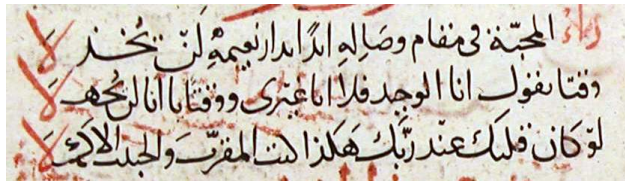 المحبّة في مقام وصاله ابدًا بدار نعيمهِ لَنْ يُخذلا
وقتا يقول انا الوحيد فلا انا غيرى ووقتا يا انا لن يُجهلا
لوْ كان قلبك عند رَبّك هكذا كنت المقرّبَ والحبيب الاكملَا